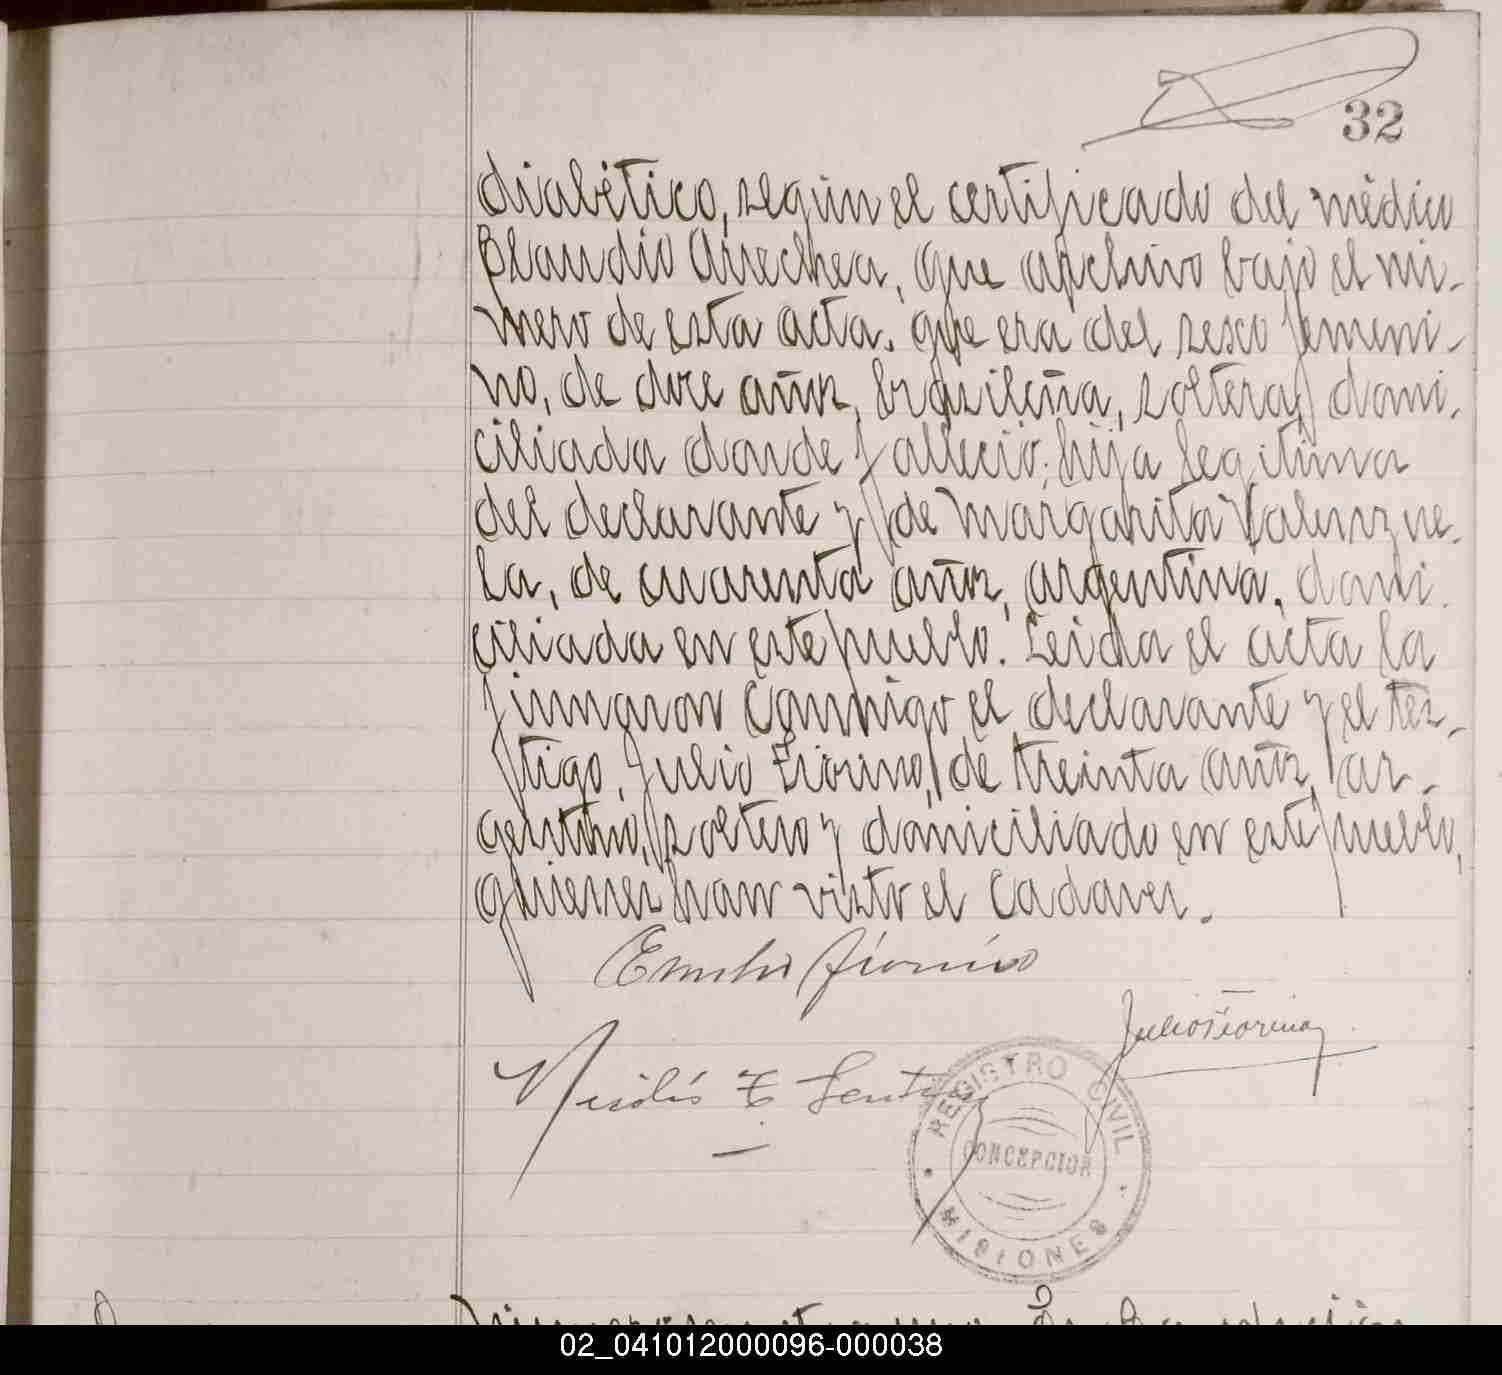 32
diabético, según el certificado del médico
Claudio Arrechea, que archivo bajo el nú-
mero de esta acta. que era del sexo femeni-
no, de doce años, brasileña, soltera, domi-
ciliada donde falleció; hija legítima
del declarante y de Margarita Valenzue-
la, de cuarenta años, argentina, domi-
ciliada en este pueblo. Leida el acta la
firmaron conmigo el declarante y el tes-
tigo, Julio Fiorino, de treinta años, ar-
gentino, soltero y domiciliado en este pueblo,
quienes han visto el cadaver.
Emilio Fiorino
Julio Fiorino
REGISTRO CIVIL
CONCEPCION
MISIONES
02_041012000096-000038